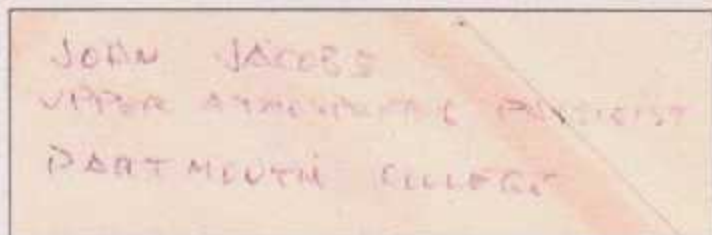 JOHN JACOBS
UPPER ATMOSPHERIC PHYSICIST
DARTMOUTH COLLEGE